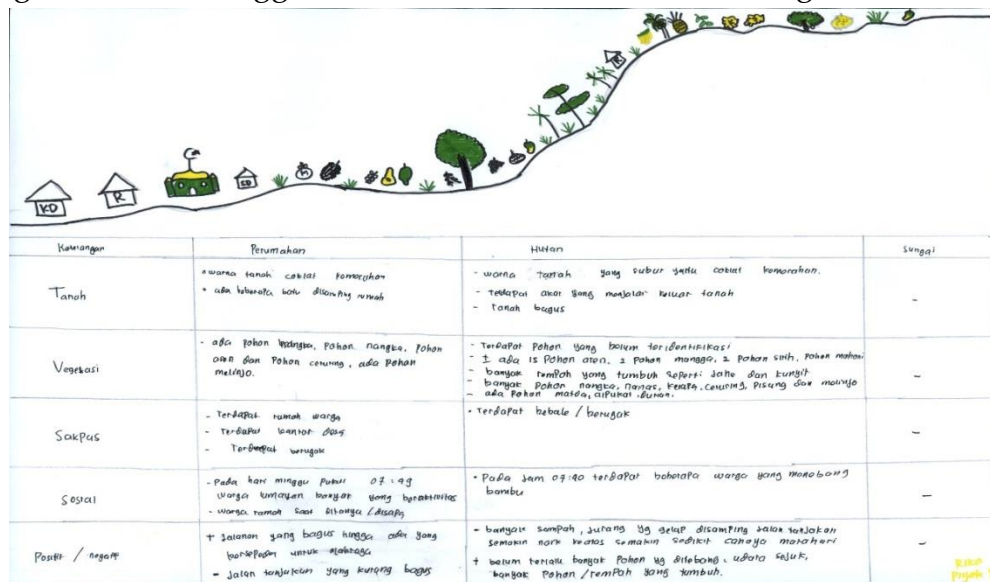 KD
R
SD
R
Kawangan
Perumahan
Hutan
Sungai
Tanah
• warna tanah coklat kemerahan
• ada beberapa batu disamping rumah
- warna tanah yang subur yaitu coklat kemerahan.
- terdapat akar yang menjalar keluar tanah
- Tanah bagus
-
Vegetasi
- ada pohon nangka, pohon
aren dan pohon ceruring, ada pohon
melinjo.
- Terdapat pohon yang belum teridentifikasi
- ± ada 15 pohon aren, 2 pohon mangga, 2 pohon sirih, pohon mahoni
- banyak rempah yang tumbuh seperti jahe dan kunyit
- banyak pohon nangka, nanas, kelapa, ceruring, pisang dan melinjo
- ada pohon alpukat, durian.
-
Sakpas
- Terdapat rumah warga
- Terdapat kantor desa
- Terdapat berugak
• Terdapat bebale / berugak
-
Sosial
- Pada hari minggu pukul 07:49
warga lumayan banyak yang beraktivitas
- warga ramah saat ditanya / disapa
• Pada jam 07:40 terdapat beberapa warga yang menebang
bambu
-
Positif / negatif
+ Jalanan yang bagus hingga ada yang
bersepedah untuk olahraga
- Jalan tanjakan yang kurang bagus
- banyak sampah, jurang yg gelap disamping jalan tanjakan
semakin naik keatas semakin sedikit cahaya matahari
+ belum terlalu banyak pohon yg ditebang, udara sejuk,
banyak pohon / rempah yang tumbuh.
-